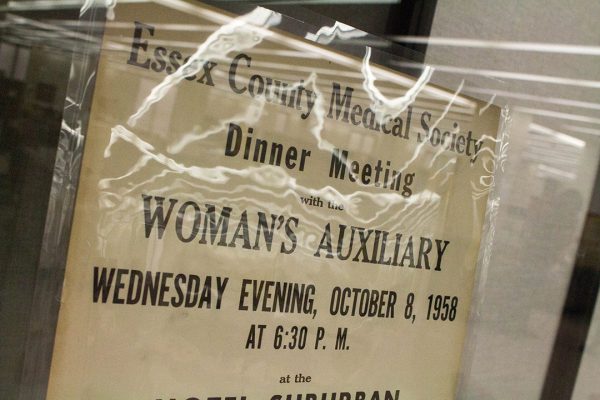 Essex County Medical Society
Dinner Meeting
with the
WOMAN'S AUXILIARY
WEDNESDAY EVENING, OCTOBER 8, 1958
AT 6:30 P. M.
at the
HOTEL SUBURBAN